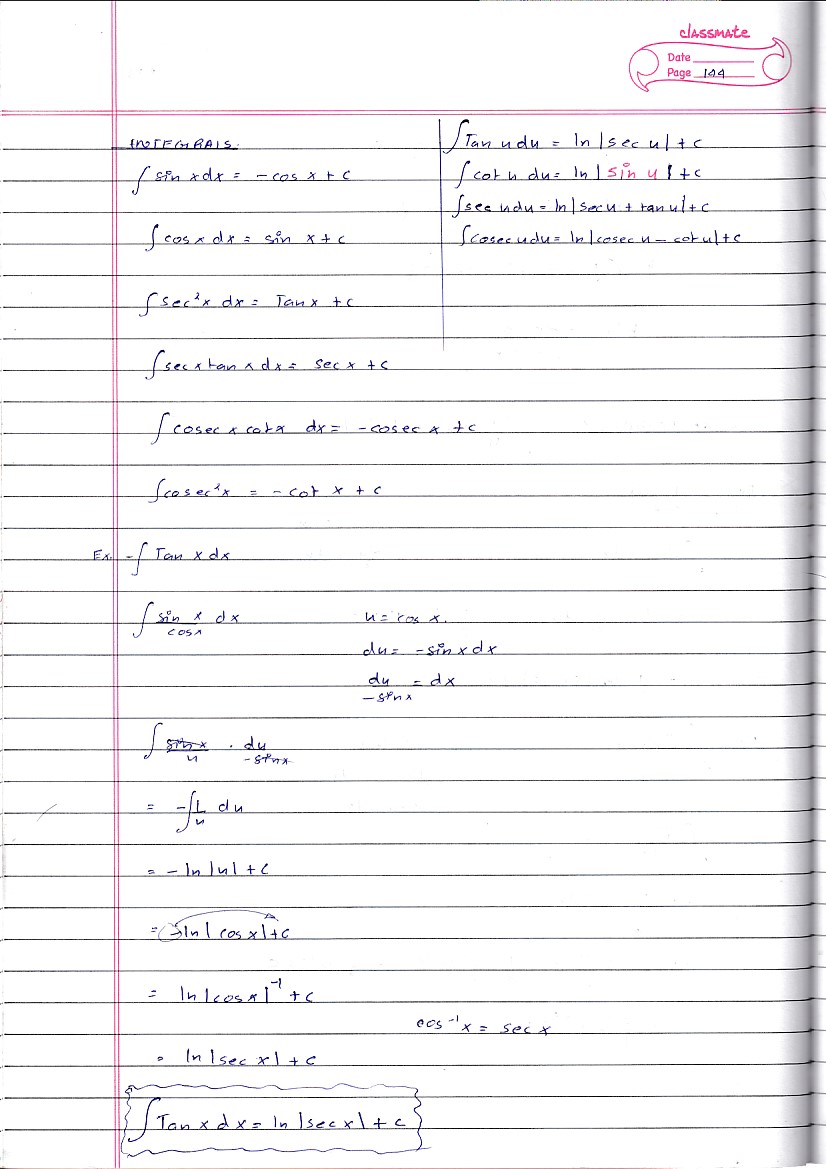 classmate
Date
Page 144
INTEGRALS:
∫ sin x dx = -cos x + c
∫ cos x dx = sin x + c
∫ sec²x dx = Tan x + c
∫ sec x tan x dx = sec x + c
∫ cosec x cot x dx = -cosec x + c
∫ cosec²x = -cot x + c
∫ Tan u du = ln |sec u| + c
∫ cot u du = ln |sin u| + c
∫ sec u du = ln |sec u + tan u| + c
∫ cosec u du = ln |cosec u - cot u| + c
Ex. - ∫ Tan x dx
∫ sin x / cos x dx
u = cos x.
du = -sin x dx
du / -sin x = dx
∫ sin x / u . du / -sin x
= -∫ 1/u du
= - ln |u| + c
= - ln | cos x| + c
= ln |cos x|⁻¹ + c
cos⁻¹ x = sec x
= ln |sec x| + c
∫ Tan x dx = ln |sec x| + c